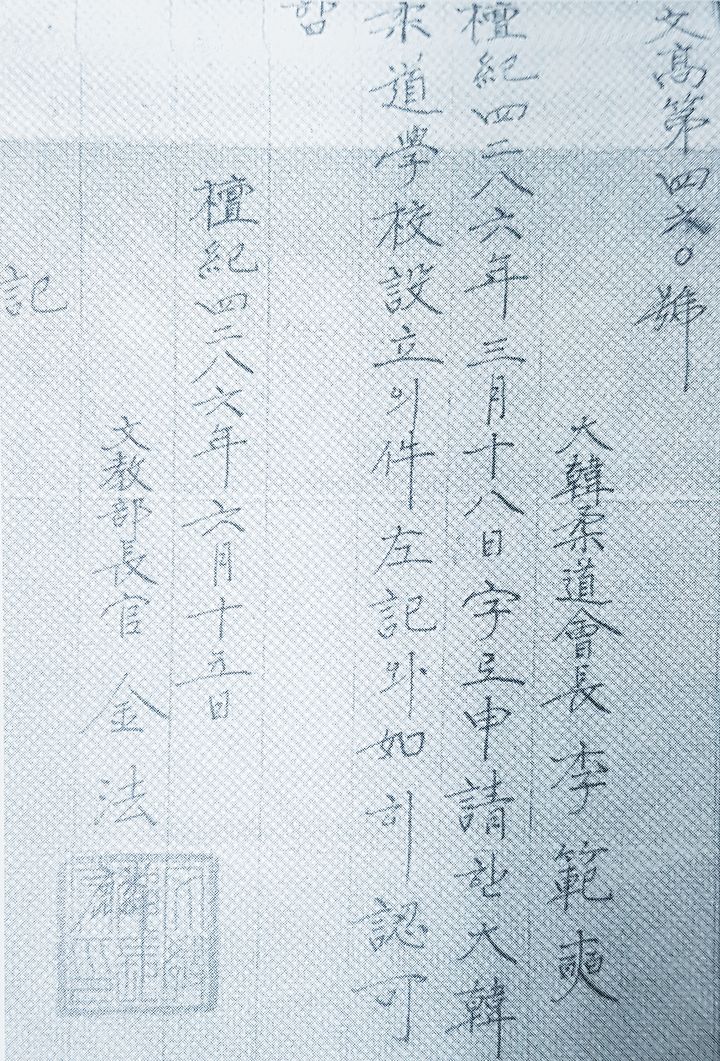 文高第四六〇號
大韓柔道會長 李範奭
檀紀四二八六年三月十八日字로申請한大韓
柔道學校設立의件左記와如히認可
함
檀紀四二八六年六月十五日
文教部長官 金法麟
記